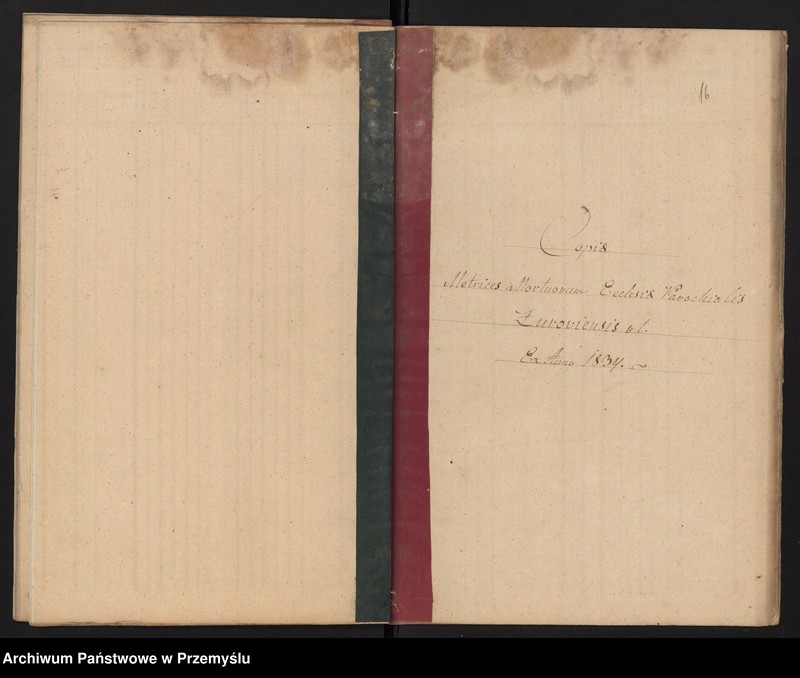 16
Copia
Metrices Mortuorum Ecclesiæ Parochialis
Żuroviensis r. l.
Ex Anno 1834.
Archiwum Państwowe w Przemyślu